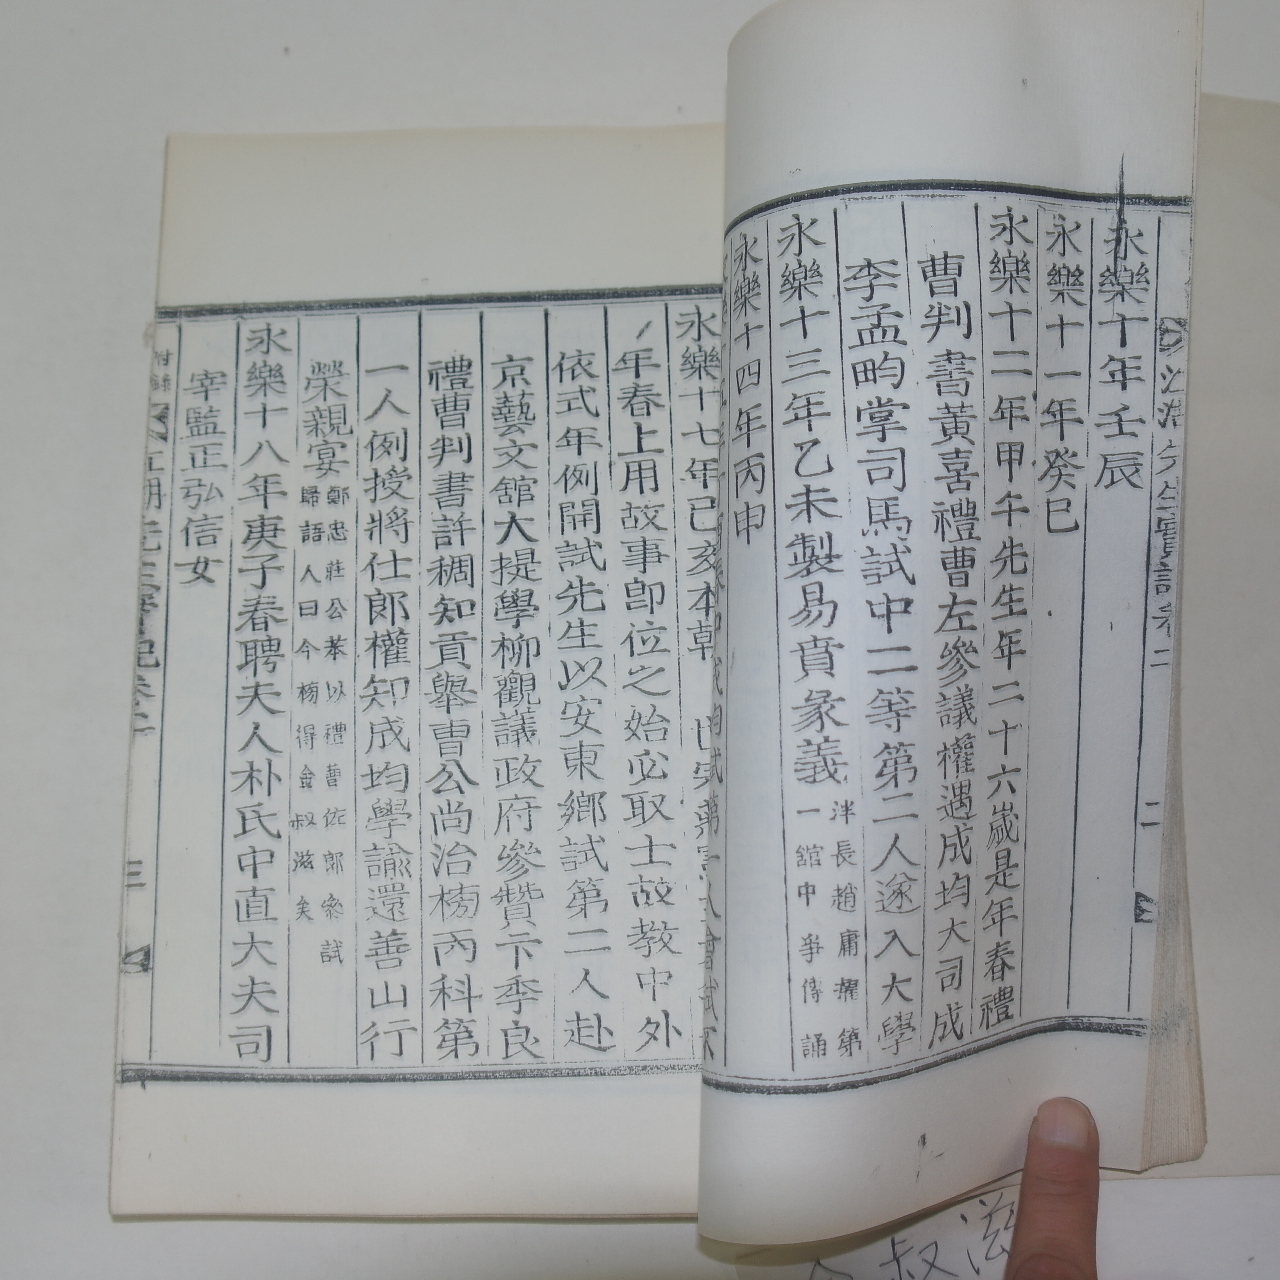 先生實記卷二
二
永樂十年壬辰
永樂十一年癸巳
永樂十二年甲午先生年二十六歲是年春禮
曹判書黃喜禮曹左參議權遇成均大司成
李孟畇掌司馬試中二等第二人遂入大學
永樂十三年乙未製易賁彖義 泮長趙庸擢第
一館中爭傳誦
永樂十四年丙申
永樂十七年己亥本朝 世宗
年春上用故事卽位之始必取士故教中外
依式年例開試先生以安東鄉試第二人赴
京藝文舘大提學柳觀議政府參贊卞季良
禮曹判書許稠知貢舉曹公尚治榜丙科第
一人例授將仕郎權知成均學諭還善山行
榮親宴 鄭忠莊公苯以禮曹佐郎參試
歸語人曰今榜得金叔滋矣
永樂十八年庚子春聘夫人朴氏中直大夫司
宰監正弘信女
附錄
江湖先生實記卷二
三
叔滋